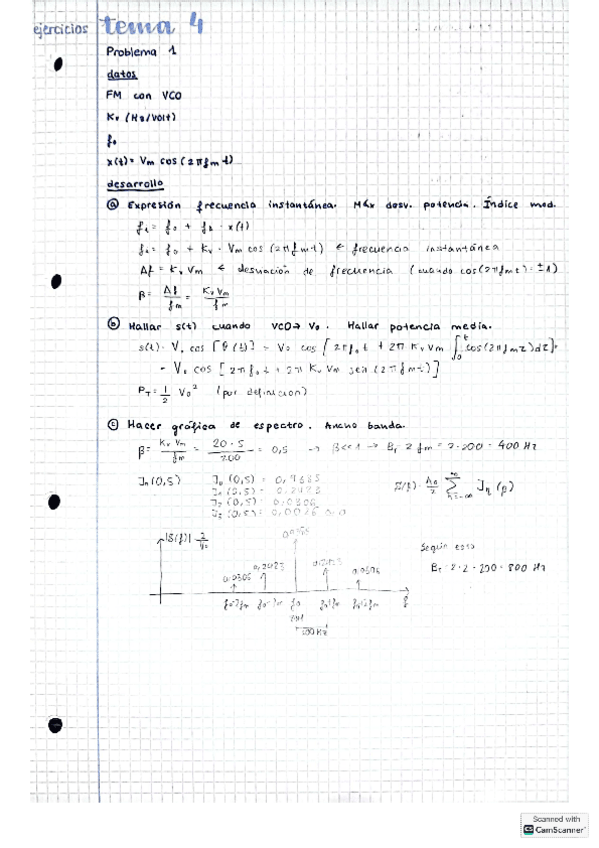 ejercicios tema 4
Problema 1
datos
FM con VCO
Kv (Hz/Volt)
f₀
x(t)= Vm cos (2πfm t)
desarrollo
a Expresión frecuencia instantánea. Máx desv. potencia. Índice mod.
fi = f₀ + f₂ · x(t)
fi = f₀ + Kv · Vm cos (2πfm t) ← frecuencia instantánea
Δf = Kv Vm ← desviación de frecuencia (cuando cos(2πfmt) = ±1)
β = Δf/fm = Kv Vm/fm
b Hallar s(t) cuando VCO→ V₀. Hallar potencia media.
s(t) = V₀ cos [θ(t)] = V₀ cos [2πf₀t + 2π Kv Vm ∫₀ᵗ cos(2πfmτ)dτ] =
= V₀ cos [2πf₀t + 2π Kv Vm sen (2πfm t)]
PT = 1/2 V₀² (por definición)
c Hacer gráfica de espectro. Ancho banda.
β = Kv Vm/fm = 20·5/200 = 0,5 → β<<1 → BT = 2 fm = 2·200 = 400 Hz
Jn(0,5)
|S(f)| 2/V₀
0,0305 0,2423
f₀
f
Según esto
BT = 2·2·200 = 800 Hz
Scanned with
CS CamScanner